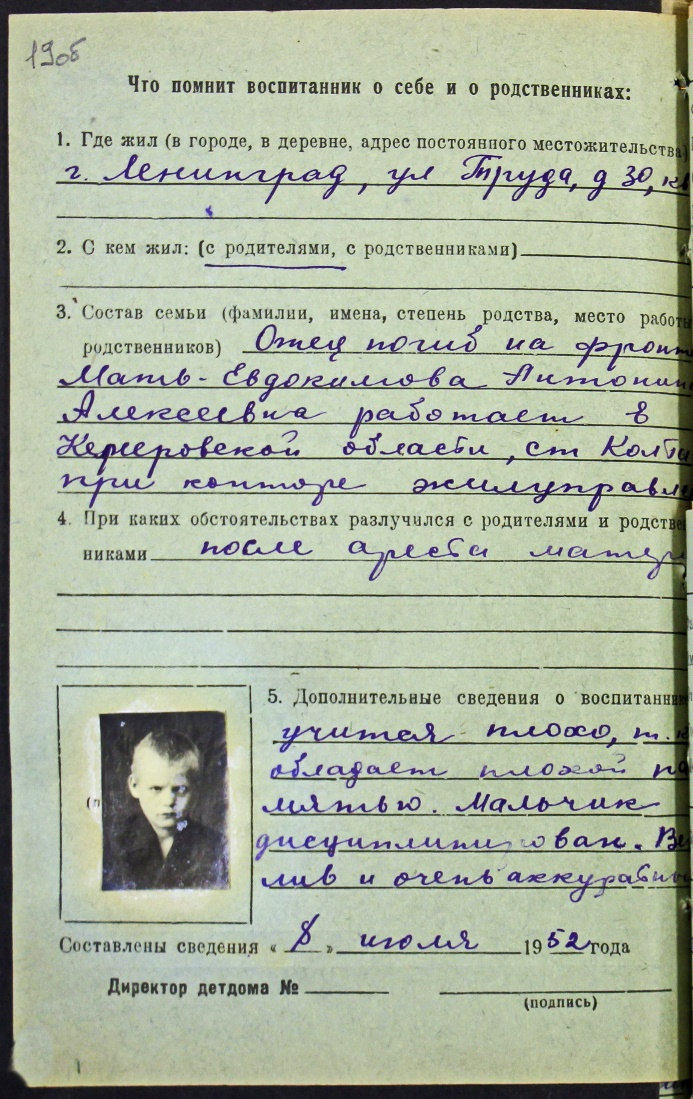 190б
Что помнит воспитанник о себе и о родственниках:
1. Где жил (в городе, в деревне, адрес постоянного местожительства)
г. Ленинград, ул Труда, д 30, кв
2. С кем жил: (с родителями, с родственниками)
3. Состав семьи (фамилии, имена, степень родства, место работы
родственников) Отец погиб на фронт
Мать - Евдокимова Антонин
Алексеевна работает в
Кемеровской области, ст Колта
при конторе жилуправле
4. При каких обстоятельствах разлучился с родителями и родствен
никами после ареста матер
5. Дополнительные сведения о воспитанник
учится плохо, т.к
обладает плохой па
мятью. Мальчик
дисциплинирован. Веж
лив и очень аккуратны
Составлены сведения « 8 » июля 1952 года
Директор детдома №
(подпись)